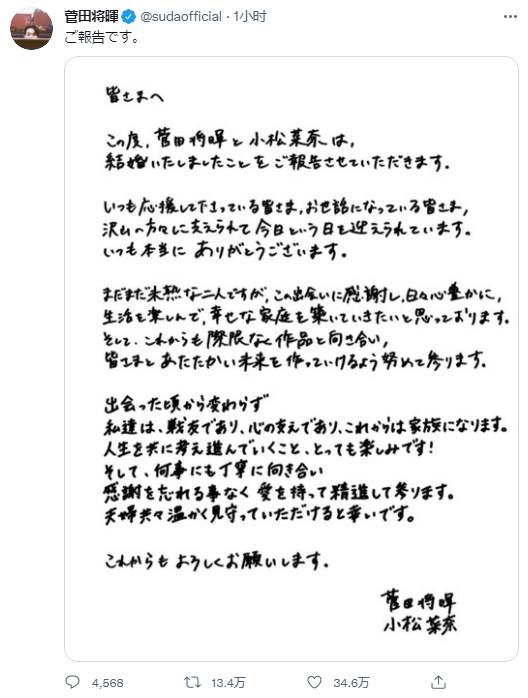 菅田将暉 @sudaofficial · 1小时
ご報告です。
皆さまへ
この度、菅田将暉と小松菜奈は、
結婚いたしましたことをご報告させていただきます。
いつも応援して下さっている皆さま、お世話になっている皆さま、
沢山の方々に支えられて今日という日を迎えられています。
いつも本当に ありがとうございます。
まだまだ未熟な二人ですが、この出会いに感謝し、日々心豊かに、
生活を楽しんで、幸せな家庭を築いていきたいと思っております。
そして、これからも際限なく作品と向き合い、
皆さまと あたたかい未来を作っていけるよう努めて参ります。
出会った頃から変わらず
私達は、戦友であり、心の支えであり、これからは家族になります。
人生を共に考え進んでいくこと、とっても楽しみです!
そして、何事にも丁寧に向き合い
感謝を忘れる事なく 愛を持って精進して参ります。
夫婦共々温かく見守っていただけると幸いです。
これからも よろしくお願いします。
菅田将暉
小松菜奈
4,568 13.4万 34.6万